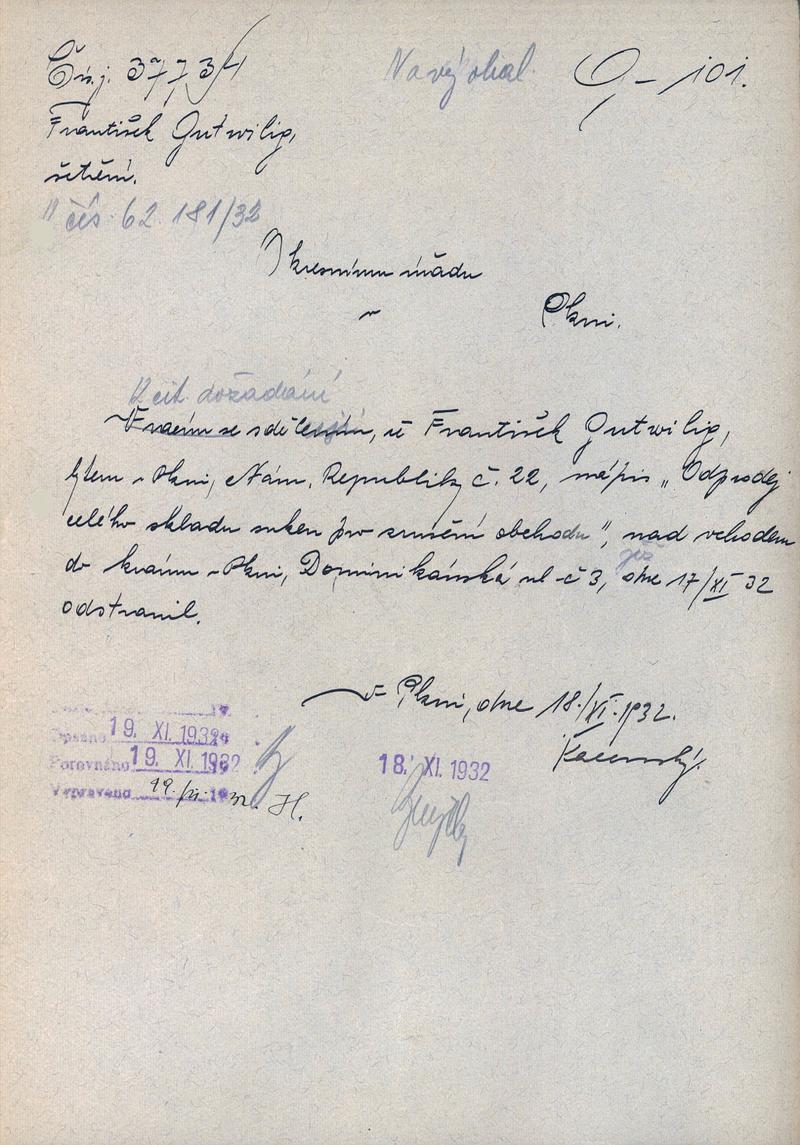 Čís.j. 37734 Nový obal. G - 101.
František Gutwilig,
šetření.
čís. 62.181/32
Okresnímu úřadu
v Plzni.
K cit. dožádání
Vracím se sdělením, že František Gutwilig,
bytem v Plzni, Nám. Republiky č. 22, nápis „Odprodej
celého skladu suken pro zrušení obchodu", nad vchodem
do krámu v Plzni, Dominikánská ul. č 3, již dne 17/XI 32
odstranil.
V Plzni, dne 18./XI. 1932.
19. XI. 1932
Porovnáno 19. XI. 1932
Vypraveno 19./XI. 32. H.
18. XI. 1932